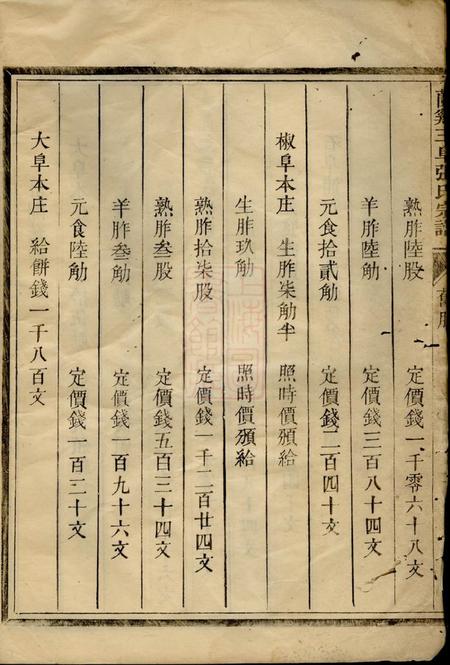 三阜張氏宗譜
熟胙陸股 定價錢一千零六十八文
羊胙陸觔 定價錢三百八十四文
元食拾貳觔 定價錢二百四十文
椒阜本庄 生胙柒觔半 照時價頒給
生胙玖觔 照時價頒給
熟胙拾柒股 定價錢一千二百廿四文
熟胙叁股 定價錢五百三十四文
羊胙叁觔 定價錢一百九十六文
元食陸觔 定價錢一百二十文
大阜本庄 給餅錢一千八百文